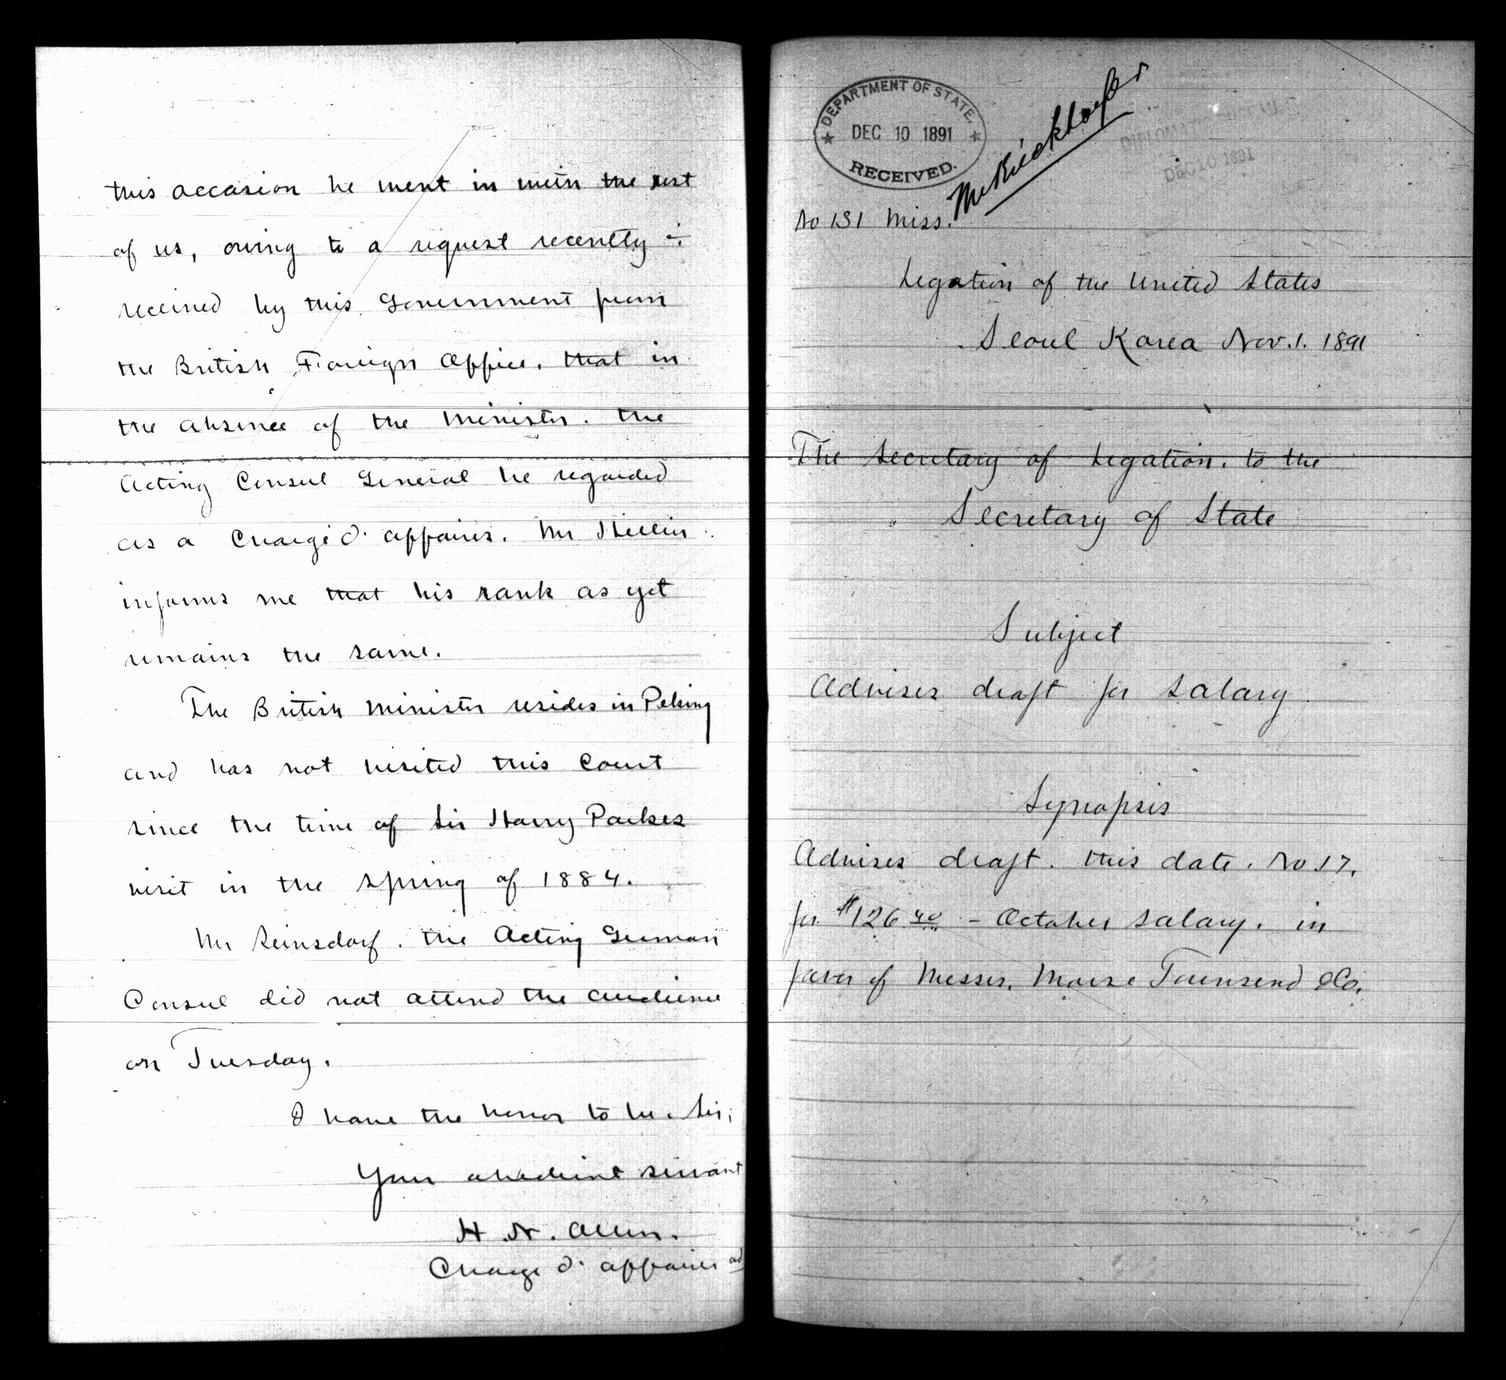 this occasion he went in with the rest
of us, owing to a request recently -
received by this Government from
the British Foreign Office, that in
the absence of the Minister, the
Acting Consul General be regarded
as a Chargé d' affaires. Mr Hillier
informs me that his rank as yet
remains the same.
The British Minister resides in Peking
and has not visited this Court
since the time of Sir Harry Parkes
visit in the spring of 1884.
Mr Reinsdorf, the Acting German
Consul did not attend the audience
on Tuesday.
I have the honor to be, Sir,
Your obedient servant
H. N. Allen.
Charge d' affaires ad
DEPARTMENT OF STATE,
DEC 10 1891
RECEIVED.
DEC 10 1891
No 131 Miss.
Legation of the United States
Seoul Korea Nov. 1. 1891
The Secretary of Legation, to the
Secretary of State
Subject
Advises draft for salary
Synopsis
Advises draft, this date, No 17,
for $126 40 - October salary, in
favor of Messrs. Morse Townsend &Co.